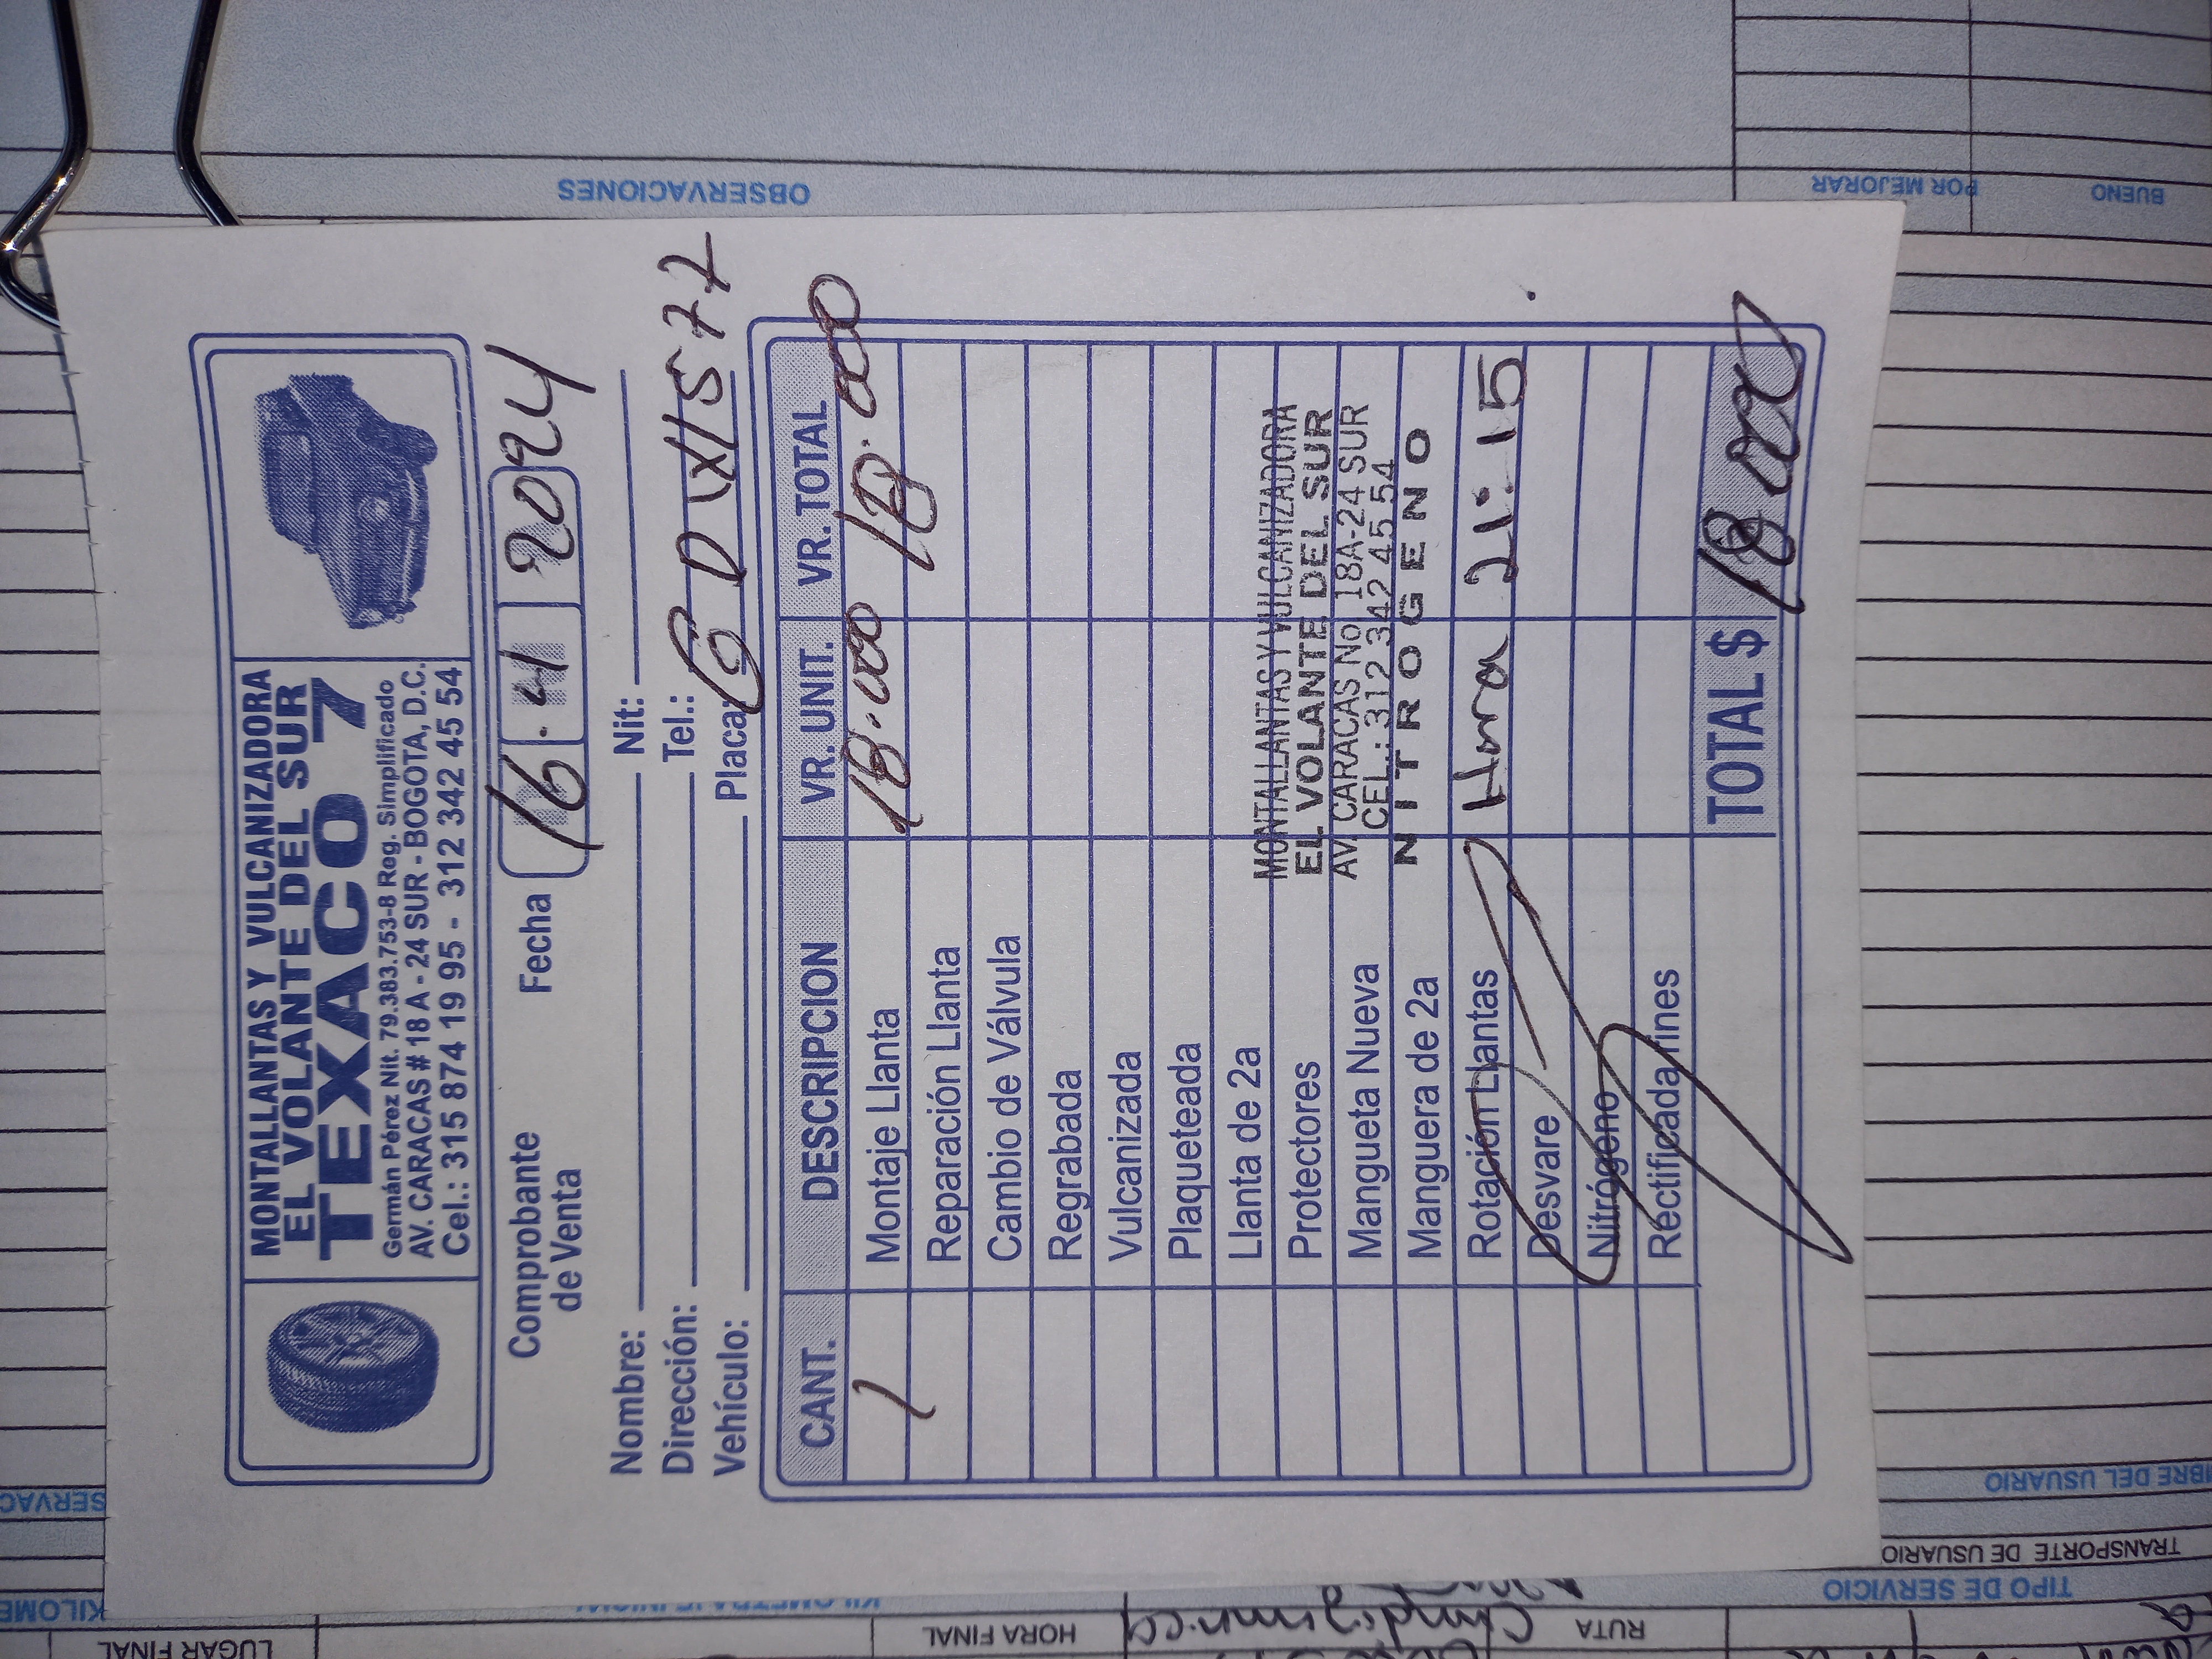 MONTALLANTAS Y VULCANIZADORA
EL VOLANTE DEL SUR
TEXACO 7
Germán Pérez Nit. 79.383.753-8 Reg. Simplificado
AV. CARACAS # 18 A - 24 SUR - BOGOTA, D.C.
Cel.: 315 874 19 95 - 312 342 45 54
Comprobante
de Venta
Fecha 16 . 4 2024
Nombre: Nit:
Dirección: Tel.:
Vehículo: Placa:
CANT. DESCRIPCION VR. UNIT. VR. TOTAL
1 Montaje Llanta 18.000 18.000
Reparación Llanta
Cambio de Válvula
Regrabada
Vulcanizada
Plaqueteada
Llanta de 2a
Protectores
Mangueta Nueva
Manguera de 2a
Rotación Llantas Hora 21:15
Desvare
Nitrógeno
Rectificada rines
MONTALLANTAS Y VULCANIZADORA
EL VOLANTE DEL SUR
AV. CARACAS No. 18A-24 SUR
CEL.: 312 342 45 54
NITROGENO
TOTAL $ 18.000
OBSERVACIONES
POR MEJORAR
BUENO
TRANSPORTE DE USUARIO
TIPO DE SERVICIO
RUTA
HORA FINAL
LUGAR FINAL